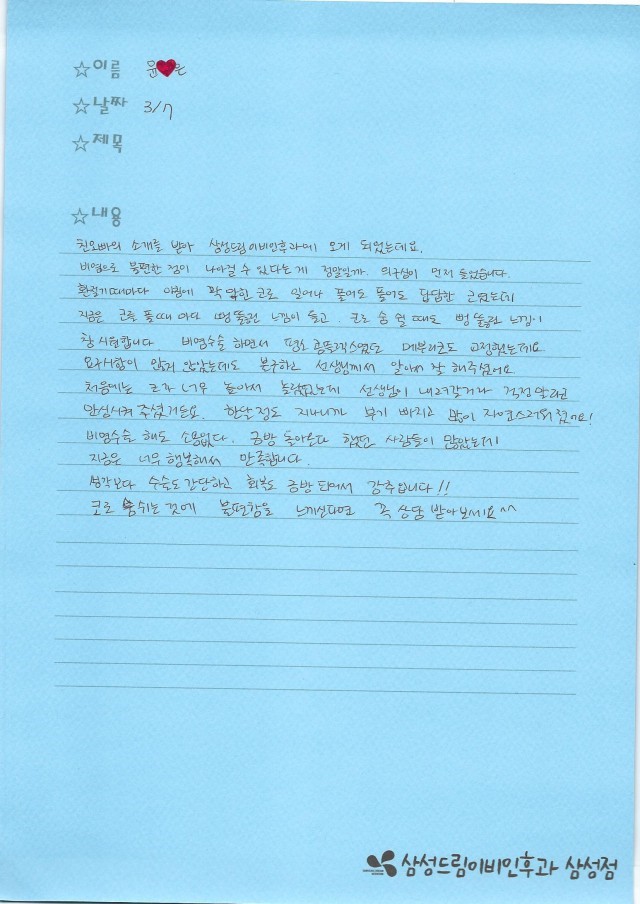 ☆이름 윤♥은
☆날짜 3/7
☆제목
☆내용
친오빠의 소개를 받아 삼성드림이비인후과에 오게 되었는데요.
비염으로 불편한 점이 나아질 수 있다는게 정말일까. 의구심이 먼저 들었습니다.
환절기때마다 아침에 꽉 막힌 코로 일어나 풀어도 풀어도 답답한 코였는데
지금은 코를 풀때 마다 뻥 뚫린 느낌이 들고. 코로 숨 쉴 때도 뻥 뚫린 느낌이
참 시원합니다. 비염수술 하면서 평소 콤플렉스였던 매부리코도 교정했는데요
요구사항이 많지 않았는데도 불구하고 선생님께서 알아서 잘 해주셨어요
처음에는 코가 너무 높아서 놀랐었는데 선생님이 내려갈거라 걱정말라고
안심시켜 주셨거든요. 한달 정도 지나니까 붓기 빠지고 많이 자연스러워 졌어요!
비염수술 해도 소용없다. 금방 돌아온다 했던 사람들이 많았는데
지금은 너무 행복해서 만족합니다.
생각보다 수술도 간단하고 회복도 금방 되어서 강추입니다!!
코로 숨쉬는 것에 불편함을 느끼신다면 꼭 상담 받아보세요^^
삼성드림이비인후과 삼성점